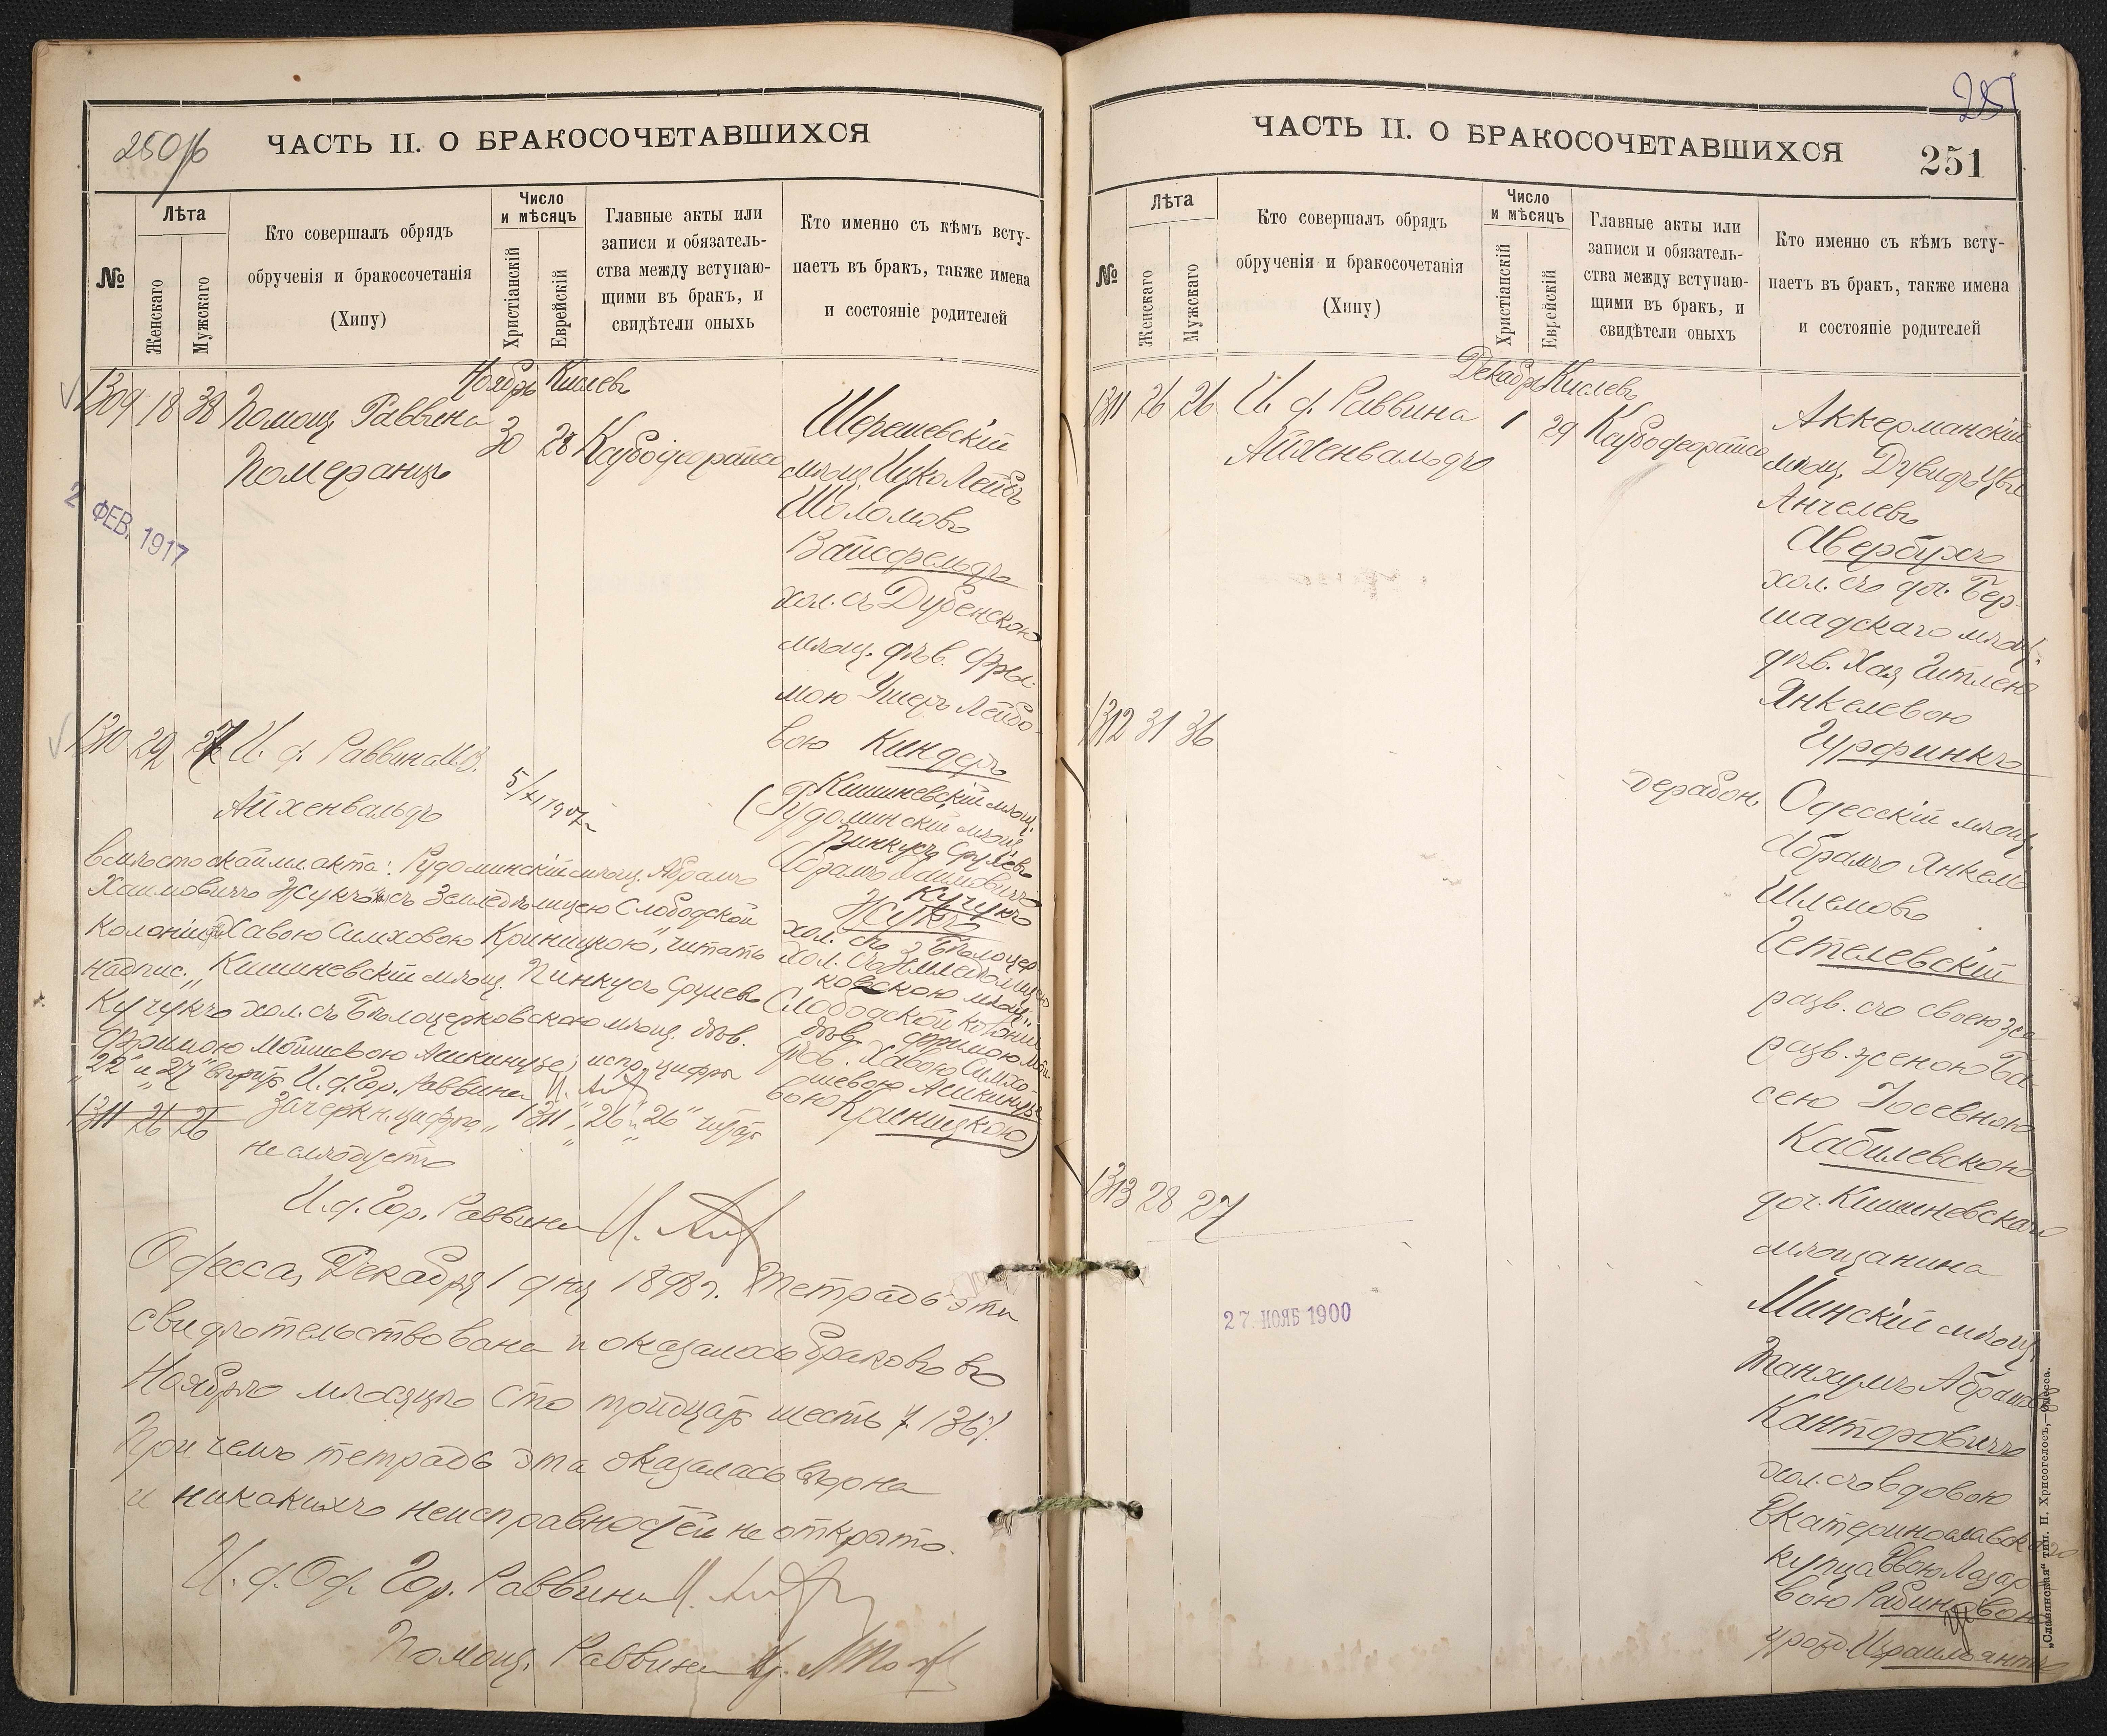 250/б
ЧАСТЬ II. О БРАКОСОЧЕТАВШИХСЯ
№
Лѣта
Женскаго
Мужскаго
Кто совершалъ обрядъ
обрученія и бракосочетанія
(Хипу)
Число
и мѣсяцъ
Христіанскій
Еврейскій
Главные акты или
записи и обязатель-
ства между вступаю-
щими въ бракъ, и
свидѣтели оныхъ
Кто именно съ кѣмъ всту-
паетъ въ бракъ, также имена
и состояніе родителей
Ноябрь Кислевъ
1309 18 38 Помощ. Раввина
Померанцъ
30 28
Шерешевскій
мѣщ. Ицко Лейбъ
Шоломовъ
Вайсфельдъ
хол. съ Дубенскою
мѣщ. дѣв. Фры-
мою Ушеръ Лейбо-
вою Киндеръ
2 ФЕВ. 1917
1310 29 27 И. д. Раввина
Айхенвальдъ
Кишиневскій мѣщ.
(Рудоминскій мѣщ.
Пинкусъ Срулевъ
Абрамъ Хаимовичъ
Кучукъ
Жукъ
хол. съ Бѣлоцер-
хол. съ Землевладѣлицею
ковскою мѣщ.
Слободской колоніи
дѣв. Фримою Мой-
дѣв. Хавою Симхо-
шевою Ашкинузе
вою Криницкою)
Рудоминскій мѣщ. Абрамъ
Хаимовичъ Жукъ съ Земледѣлицею Слободской
колоніи Хавою Симховою Криницкою", читать
надпис. „Кишиневскій мѣщ. Пинкусъ Срулевъ
Кучукъ хол. съ Бѣлоцерковскою мѣщ. дѣв.
Фримою Мойшевою Ашкинузе; испр. цифры
„22" и „27" вѣрить И. д. Гор. Раввина
1311 26 26 Зачеркн. цифры „1311", „26" и „26" читать
не слѣдуетъ
И. д. Гор. Раввина
Одесса, Декабря 1 дня 1898 г. Тетрадь эта
свидѣтельствована и оказалось браковъ въ
Ноябрѣ мѣсяцѣ сто тридцать шесть /136/.
При чемъ тетрадь эта оказалась вѣрна
и никакихъ неисправностей не открыто.
И. д. Од. Гор. Раввина
Помощ. Раввина
251
ЧАСТЬ II. О БРАКОСОЧЕТАВШИХСЯ
251
№
Лѣта
Женскаго
Мужскаго
Кто совершалъ обрядъ
обрученія и бракосочетанія
(Хипу)
Число
и мѣсяцъ
Христіанскій
Еврейскій
Главные акты или
записи и обязатель-
ства между вступаю-
щими въ бракъ, и
свидѣтели оныхъ
Кто именно съ кѣмъ всту-
паетъ въ бракъ, также имена
и состояніе родителей
Декабрь Кислевъ
1311 26 26 И. д. Раввина
Айхенвальдъ
1 29
Аккерманскій
мѣщ. Дувидъ Цви
Анчелевъ
Авербухъ
хол. съ доч. Бер-
шадскаго мѣщ.
дѣв. Хая Гитлею
Янкелевою
Гурфинкъ
1312 31 36
Одесскій мѣщ.
Абрамъ Янкель
Шлемовъ
Гетелевскій
разв. съ своею же
разв. женою Ба-
сею Іосевною
Кабилевскою
доч. Кишиневскаго
мѣщанина
1313 28 27
Минскій мѣщ.
Танхумъ Абрамовъ
Канторовичъ
хол. съ вдовою
Екатеринославскаго
купца
вою Рабиновою
урожд.
27. НОЯБ 1900
„Славянская" тип. Н. Хрисогелосъ,—Одесса.